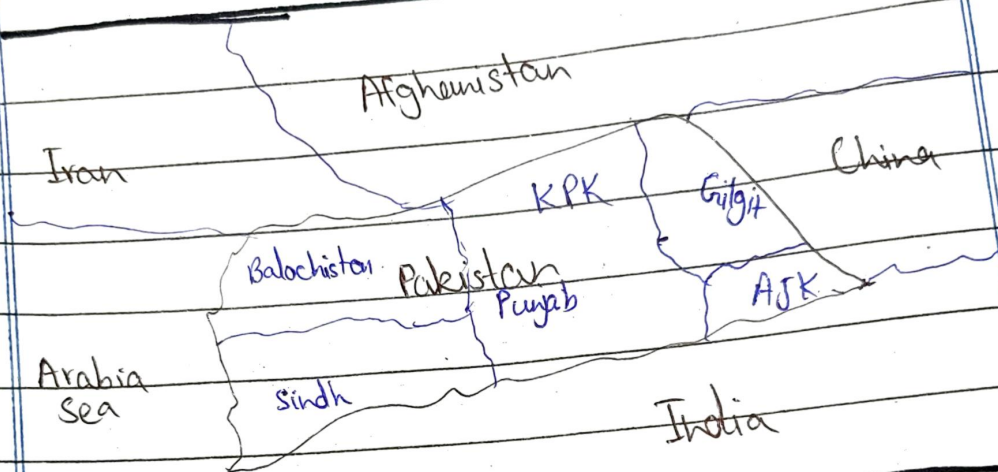 Afghanistan
Iran
China
KPK
Gilgit
Balochistan
Pakistan
Punjab
AJK
Arabia
Sea
Sindh
India